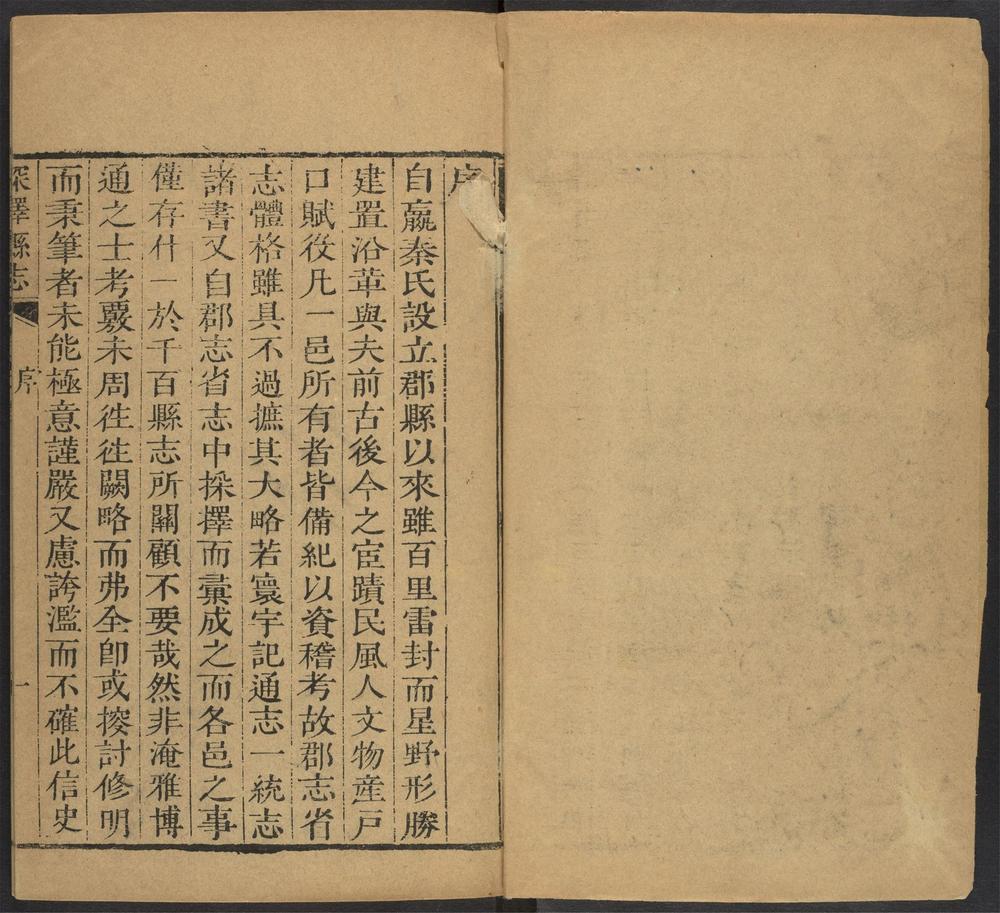 序
自嬴秦氏設立郡縣以來雖百里雷封而星野形勝
建置沿革與夫前古後今之宦蹟民風人文物產戶
口賦役凡一邑所有者皆備紀以資稽考故郡志省
志體格雖具不過摭其大略若寰宇記通志一統志
諸書又自郡志省志中採擇而彚成之而各邑之事
僅存什一於千百縣志所關顧不要哉然非淹雅博
通之士考覈未周徃徃闕略而弗全卽或搜討修明
而秉筆者未能極意謹嚴又慮誇濫而不確此信史
深澤縣志
序
一